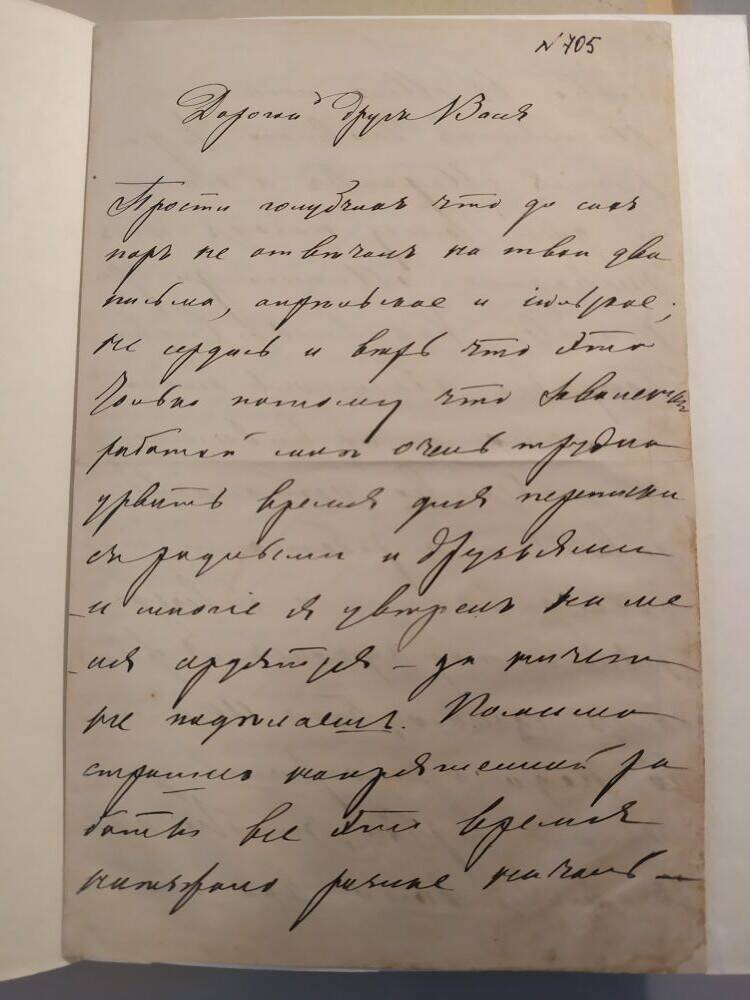 N 705
Дорогой другъ Вася
Прости голубчикъ что до сихъ
поръ не отвѣчалъ на твои два
письма, апрѣльское и іюльское;
не сердись и вѣрь что это
только потому что заваленный
работой мнѣ очень трудно
урвать время для переписки
съ родными и друзьями
и многіе я увѣренъ на ме
ня сердятся — да ничего
не подѣлаешь. Помимо
страшно напряженной ра
боты все это время